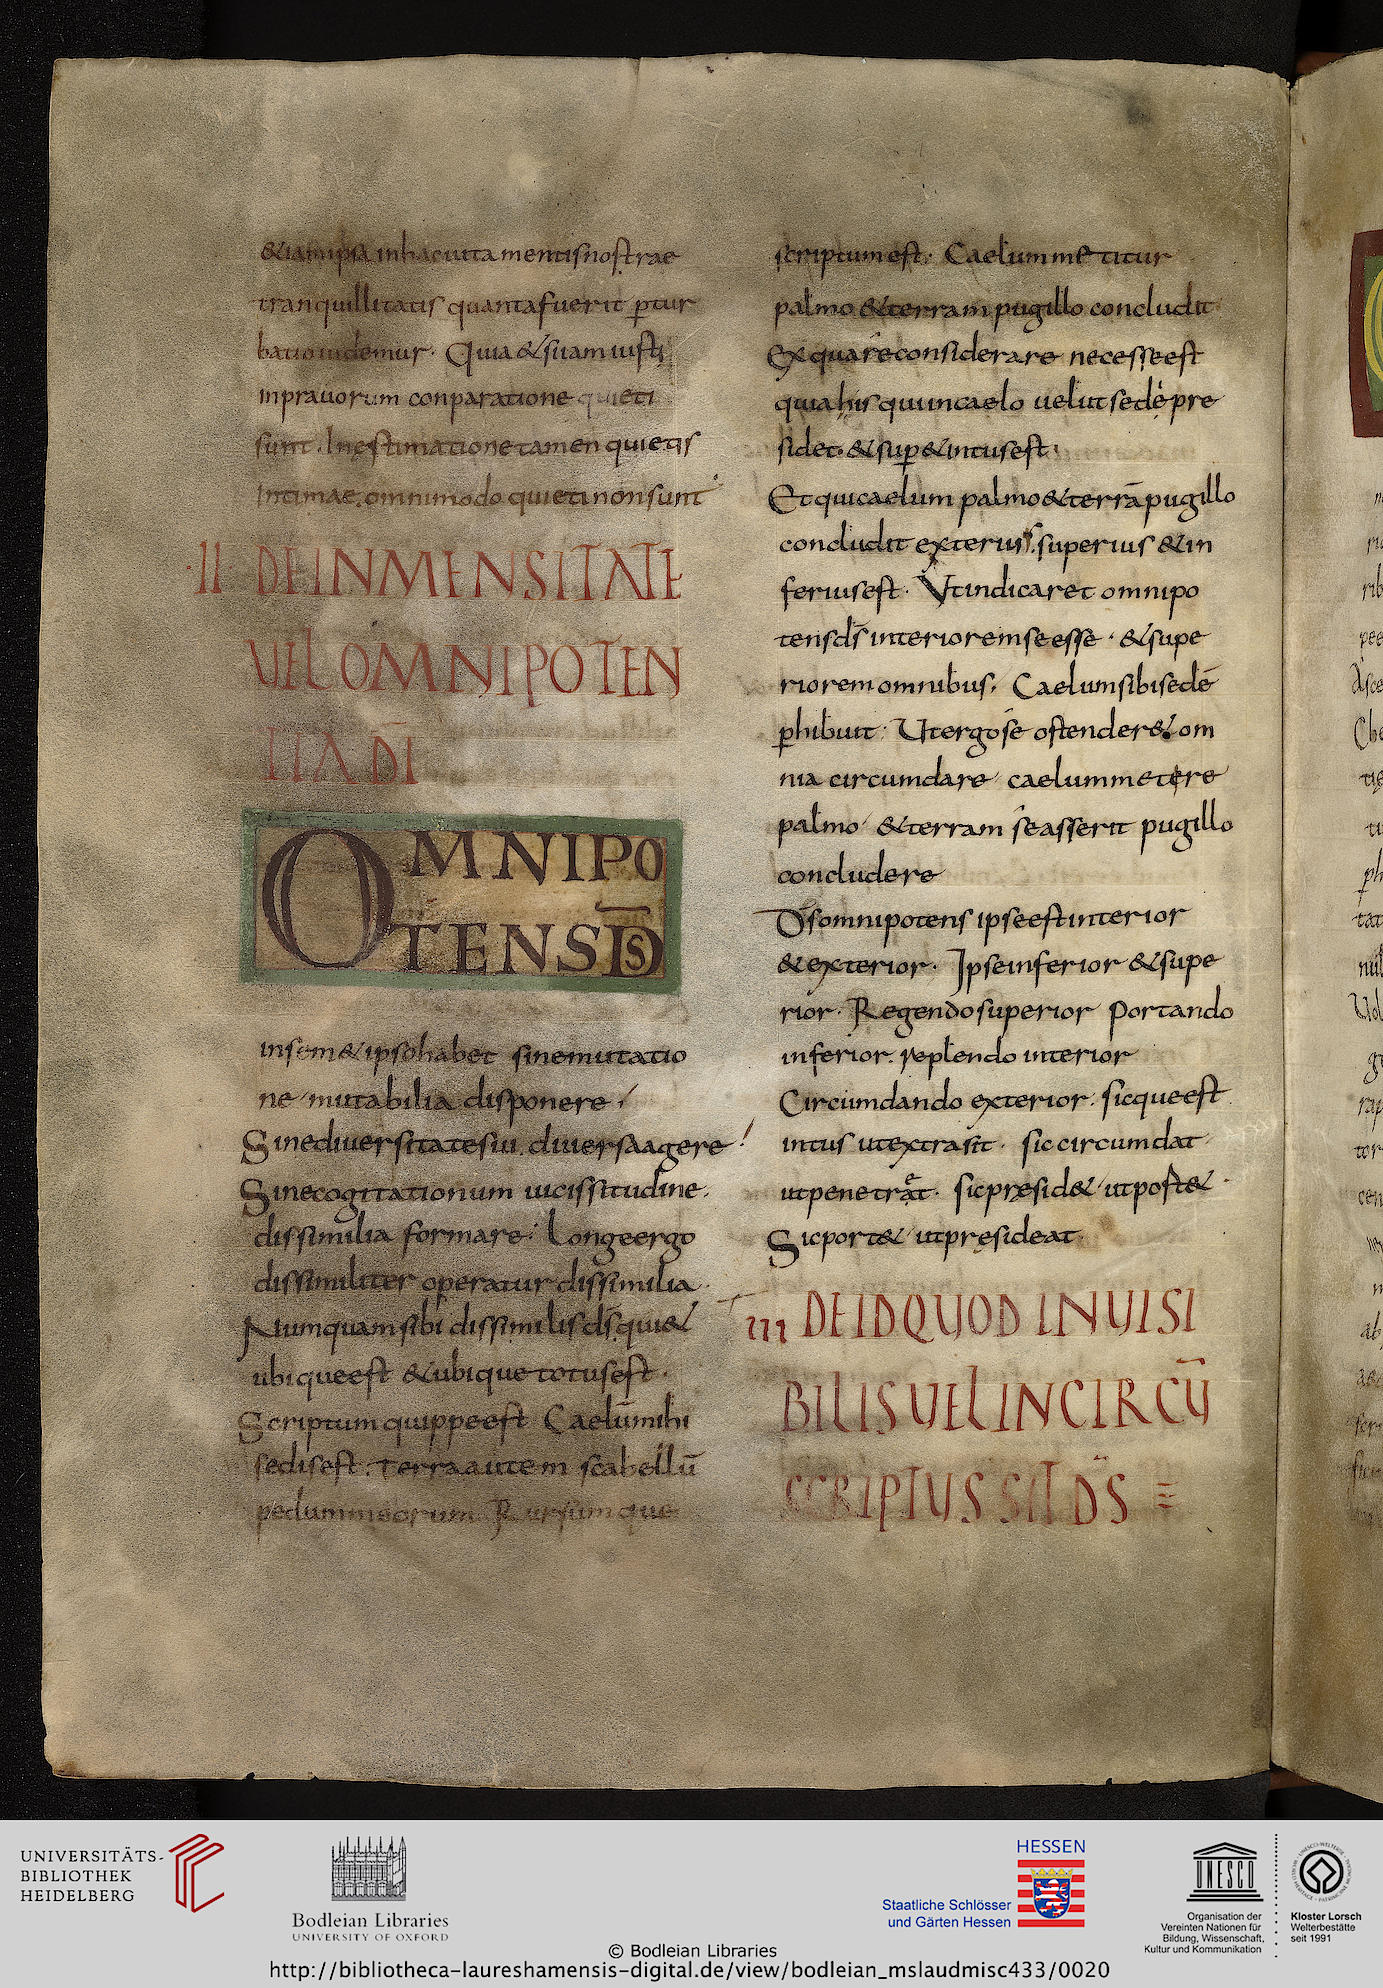 &iamipsa inhacuita mentisnostrae
tranquillitatis quantafuerit ꝑtur
batiouidemur· Quia &suamiusti
inprauorum conparatione quieti
sunt· Inęstimationetamen quietis
Intimae· omnimodo quietinonsunt
·II DEINMENSITATE
UEL OMNIPOTEN
TIA DĪ
OMNIPO
TENS D̄S
insem&ipsohabet sinemutatio
ne mutabilia disponere·
Sinediuersitatesui diuersaagere·
Sinecogitationum uicissitudine·
dissimilia formare· Longeergo
dissimiliter operatur dissimilia·
Numquamsibi dissimilis d̄s· qui&
ubiqueest &ubique totusest·
Scriptum quippeest Caelūmihi
sedisest· Terraautem scabellū
pedummeorum Rursumque
scriptumest· Caelummetitur
palmo &terram pugillo concludit·
Exquareconsiderare necesseest
quiahis quiincaelo uelut sedepre
sidet· &suꝑ &intusest·
Etquicaelum palmo &terrā pugillo
concludit exterius· superius &in
feriusest· Vtindicaret omnipo
tensd̄s interioremseesse· &supe
riorem omnibus· Caelumsibisedē
ꝑhibuit· Utergose ostender& om
nia circumdare caelummetere
palmo &terram seasserit pugillo
concludere
D̄somnipotens ipseestinterior
&exterior· Ipseinferior &supe
rior· Regendosuperior portando
inferior· replendo interior
Circumdando exterior· sicqueest
intus utextrasit· sic circumdat
utpenetrat· sicpręsid& utport&·
Sicport& utpręsideat·
III DEIDQUOD INUISI
BILIS UEL INCIRCŪ
SCRIPTUS SIT D̄S
UNIVERSITÄTS-
BIBLIOTHEK
HEIDELBERG
Bodleian Libraries
UNIVERSITY OF OXFORD
HESSEN
Staatliche Schlösser
und Gärten Hessen
UNESCO
Organisation der
Vereinten Nationen für
Bildung, Wissenschaft,
Kultur und Kommunikation
Kloster Lorsch
Welterbestätte
seit 1991
© Bodleian Libraries
http://bibliotheca-laureshamensis-digital.de/view/bodleian_mslaudmisc433/0020